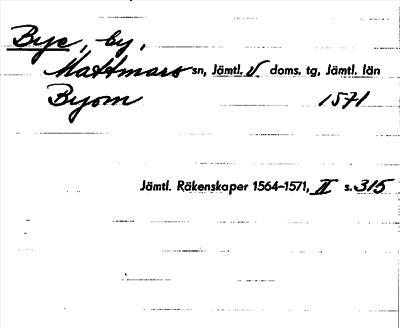 Bye, by,
Mattmars sn, Jämtl. V doms. tg, Jämtl. län
Byom 1571
Jämtl. Räkenskaper 1564–1571, II s. 315